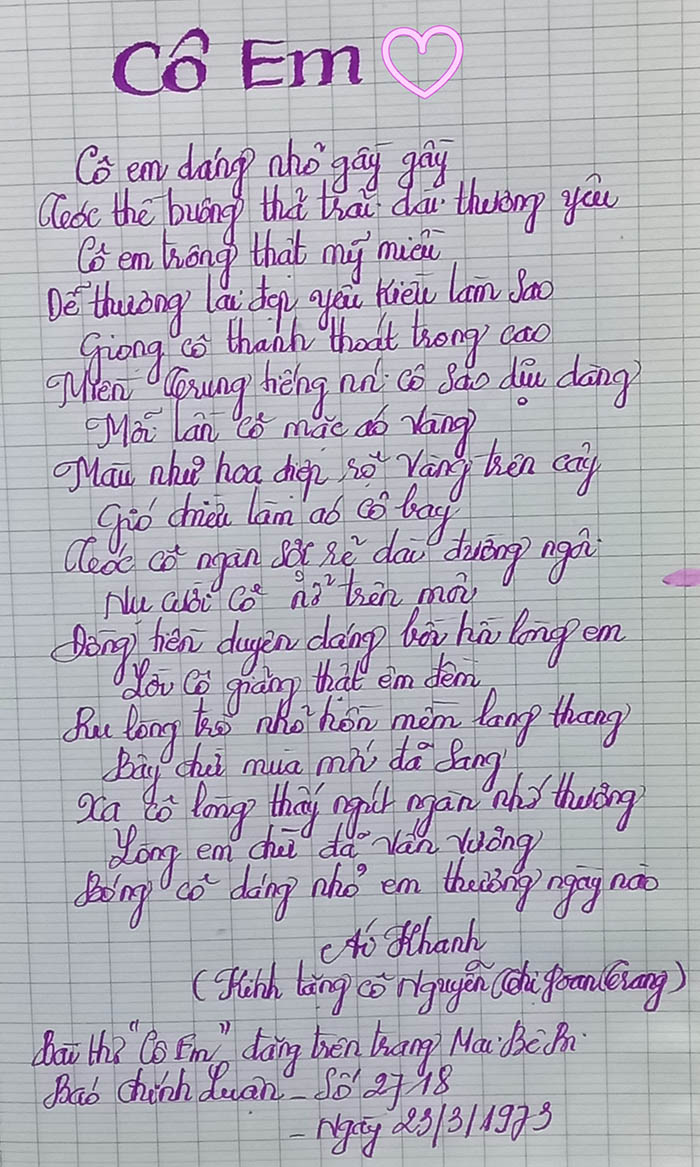 Cô Em
Cô em dáng nhỏ gầy gầy
Tóc thề buông thả trải dài thương yêu
Cô em trông thật mỹ miều
Dễ thương lại đẹp yêu kiều làm sao
Giọng cô thanh thoát trong cao
Miền Trung tiếng nói cô sao dịu dàng
Mỗi lần cô mặc áo vàng
Màu như hoa điệp rơi vàng trên cây
Gió chiều làm áo cô bay
Tóc cô ngăn sóc rẽ dài đường ngôi
Nụ cười cô nở trên môi
Đồng tiền duyên dáng bồi hồi lòng em
Lời cô giảng thật êm đềm
Ru lòng trò nhỏ hồn mềm lang thang
Bây chừ mùa mới đã sang
Xa cô lòng thấy ngút ngàn nhớ thương
Lòng em chừ đã vấn vương
Bóng cô dáng nhỏ em thương ngày nào
Ái Khanh
(Kính tặng cô Nguyễn Thị Đoan Trang)
Bài thơ "Cô Em" đăng trên trang Mai Bê Bi
Báo Chính Luận - Số 2718
- Ngày 23/3/1973